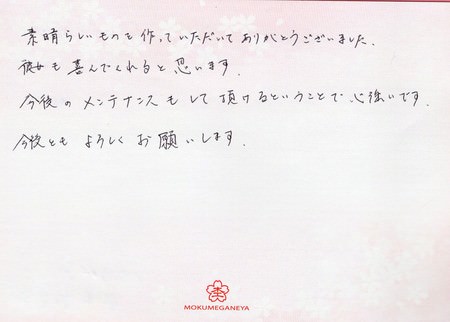 素晴らしいものを作っていただいてありがとうございました.
彼女も喜んでくれると思います.
今後のメンテナンスもして頂けるということで心強いです.
今後ともよろしくお願いします.
MOKUMEGANEYA